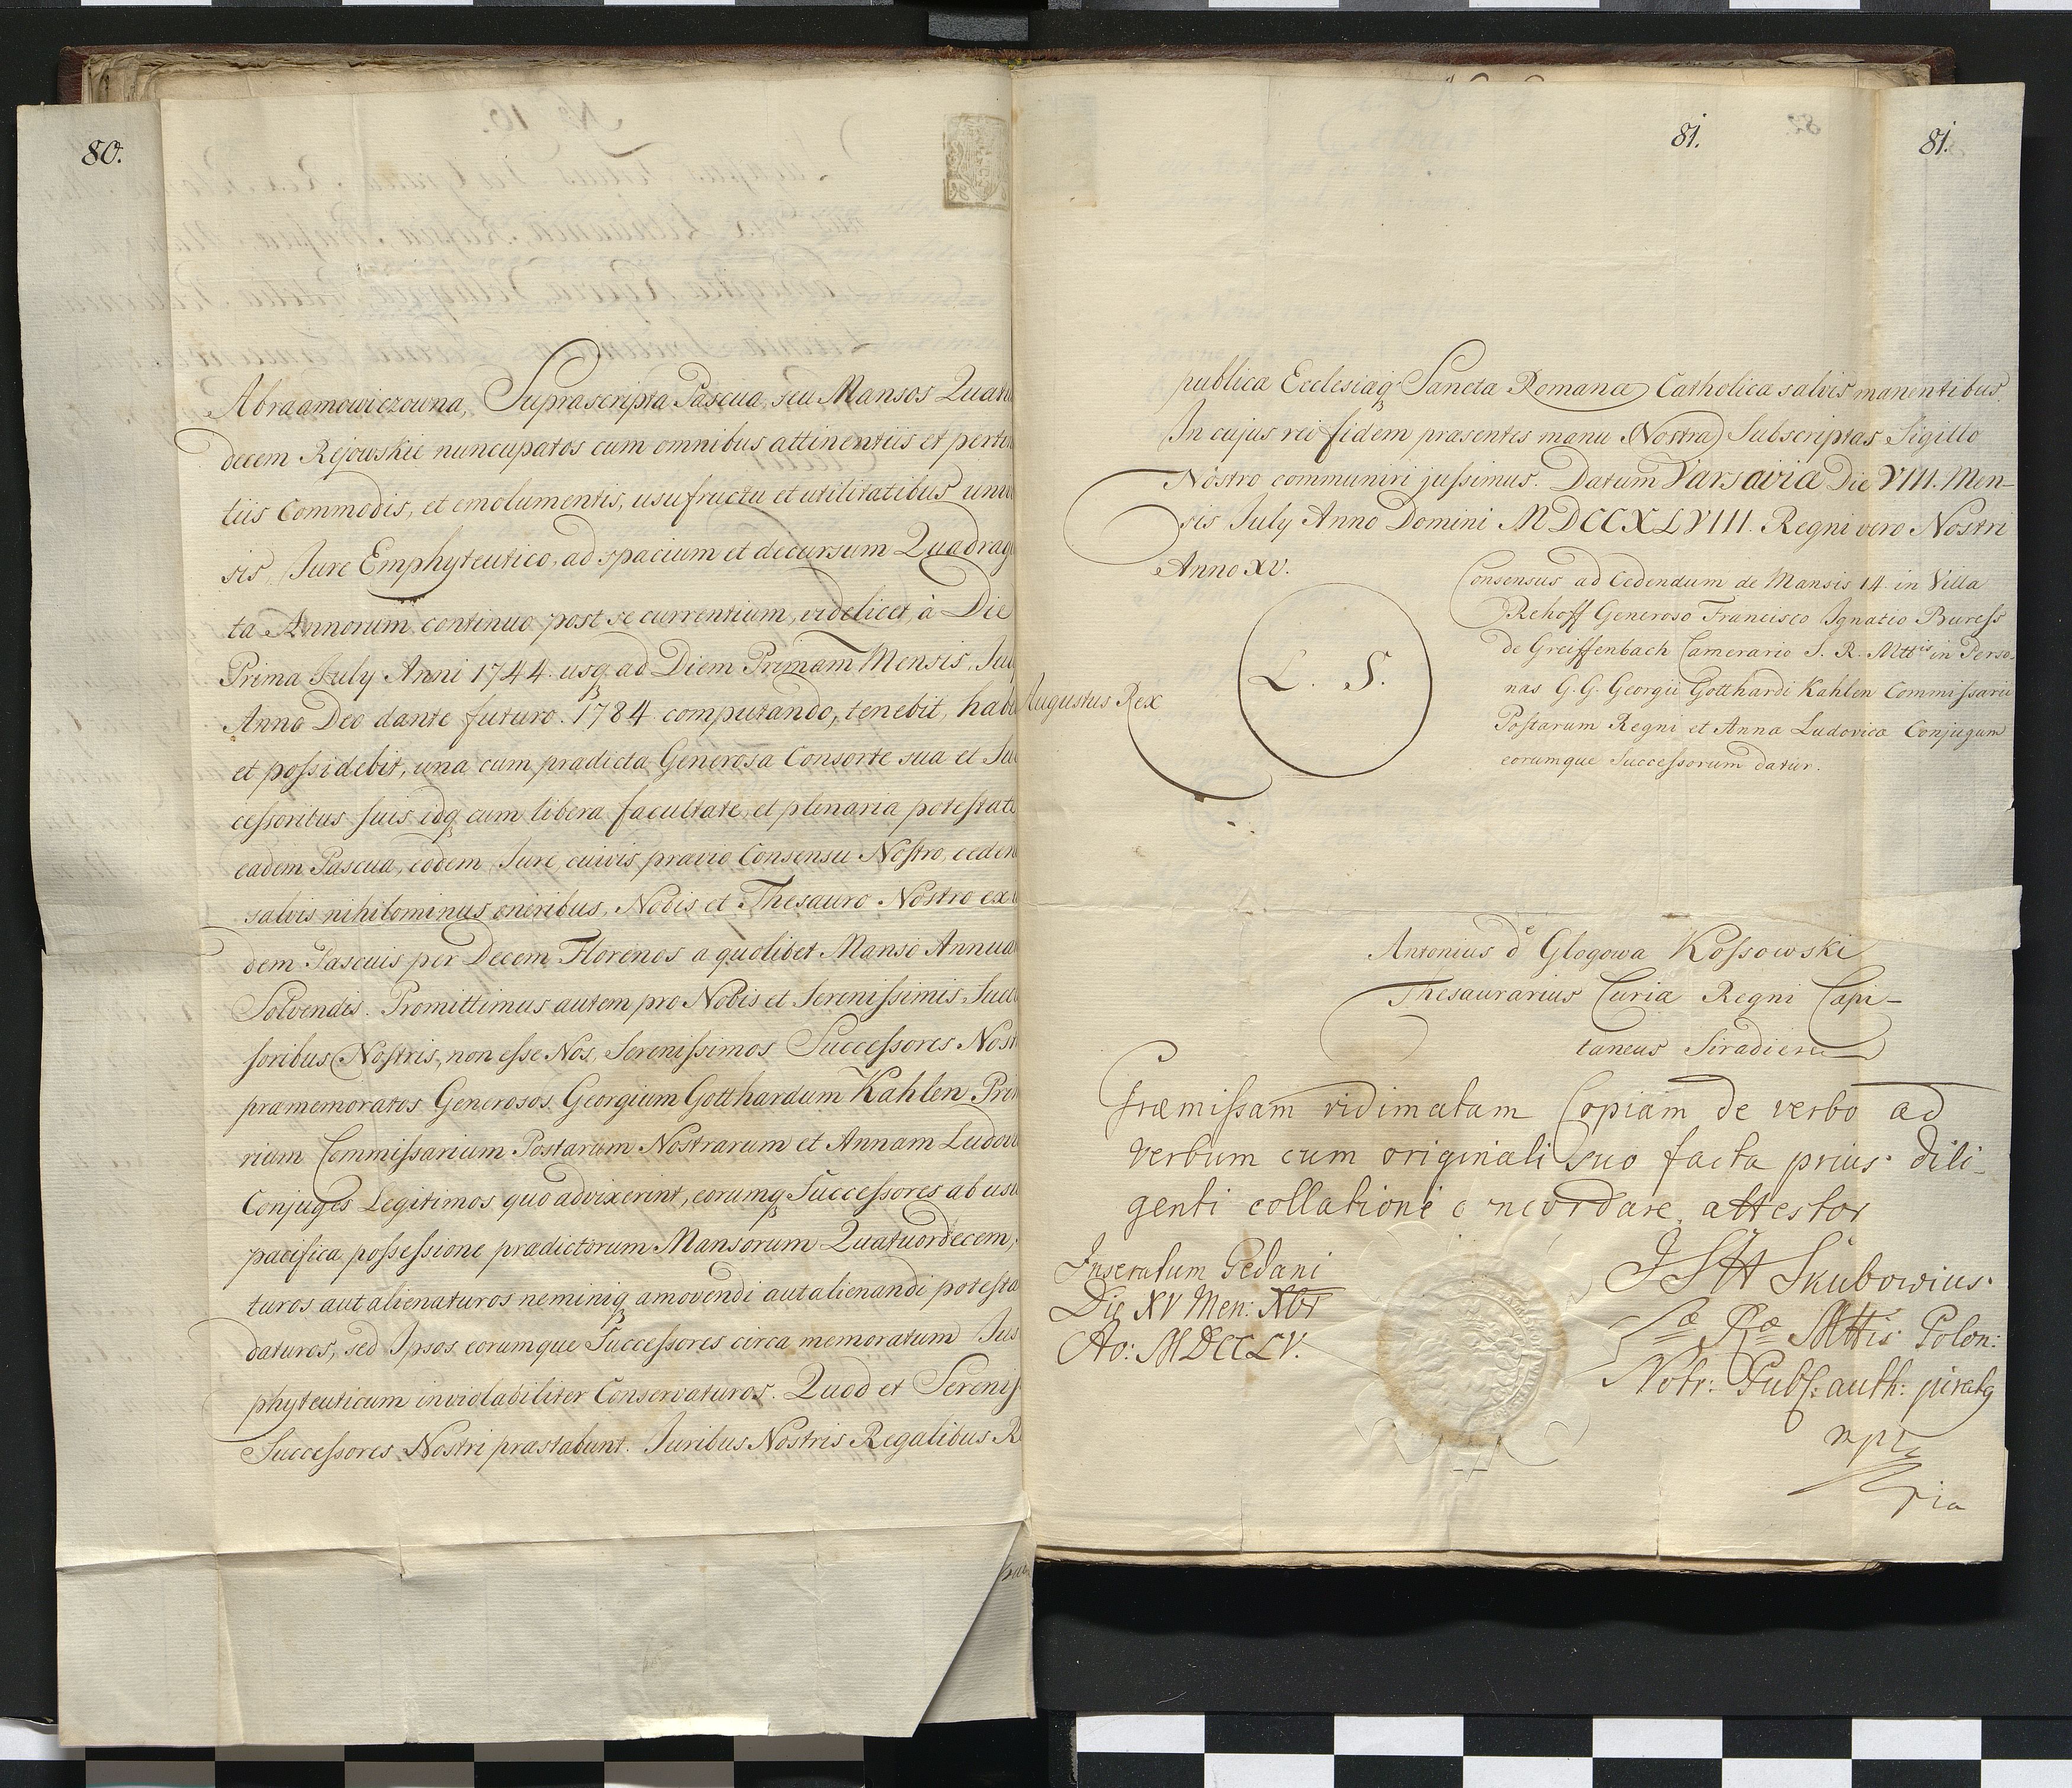 80.
Abraamowiczowna, Suprascripta Pascua, seu Mansos Quatu
decem Rejowskie nuncupatos cum omnibus attinentiis et perti
tiis Commodis, et emolumentis, usufructu et utilitatibus univ
sis, Jure Emphyteutico, ad spacium et decursum Quadrag
ta Annorum continuo post se currentium, videlicet, à Die
Prima July Anni 1744. usq ad Diem Primam Mensis, Jul
Anno Deo dante futuro. 1784. computando, tenebit, habe
et possidebit, una cum prædicta Generosa Consorte sua et Su
cessoribus suis idq cum libera facultate, et plenaria potestate
eadem Pascua, eodem Jure cuivis prævio Consensu Nostro, ceden
salvis nihilominus oneribus, Nobis et Thesauro Nostro ex
dem Pascuis per Decem Florenos a quolibet Manso Annua
Solvendis. Promittimus autem pro Nobis et Serenissimis, Succ
soribus Nostris, non esse Nos, Serenissimos Successores Nost
præmemoratos Generosos Georgium Gotthardum Kahlen Pri
rium Commissarium Postarum Nostrarum et Annam Ludovi
Conjuges Legitimos, quo advixerint, eorumq Successores ab usu
pacifica possessione prædictorum Mansorum Quatuordecem,
turos aut alienaturos neminiq amovendi aut alienandi potesta
daturos, sed Ipsos eorumque Successores circa memoratum Jus
phyteuticum inviolabiliter Conservaturos. Quod et Sereniss
Successores Nostri præstabunt. Juribus Nostris Regalibus R
81.
81.
publica Ecclesiæq Sanctæ Romanæ Catholicæ salvis manentibus.
In cujus rei fidem præsentes manu Nostra Subscriptas Sigillo
Nostro communiri jussimus. Datum Varsaviæ Die VIII. Men-
sis July Anno Domini MDCCXLVIII. Regni vero Nostri
Anno XV.
Augustus Rex
L. S.
Consensus ad Cedendum de Mansis 14. in Villa
Rehoff Generoso Francisco Ignatio Buress
de Greiffenbach Camerario S. R. Mttis in Perso-
nas G. G. Georgii Gotthardi Kahlen Commissarii
Postarum Regni et Anna Ludovica Conjugum
eorumque Successorum datur.
Antonius de Glogowa Kossowski
Thesaurarius Curiæ Regni Capi-
taneus Siradien
Præmissam vidimatam Copiam de verbo ad
verbum cum originali suo facta prius dili-
genti collatione concordare attestor
Inseratum Gedani
Die XV Men: Xbr
Ao: MDCCLV.
JSH Skubovius
Sæ Ræ Mttis Polon:
Notr: Publ: auth: juratq
mpr
pria